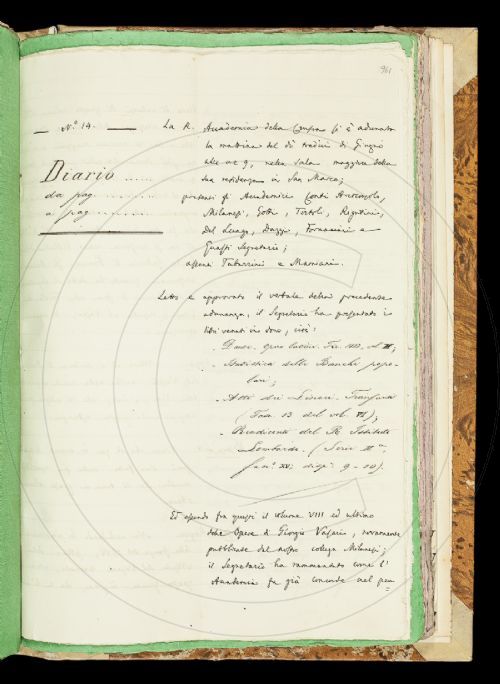 961
N.° 14.
Diario ......
da pag. ............
a pag. ............
La R. Accademia della Crusca si è adunata
la mattina del dì tredici di Giugno
alle ore 9, nella sala maggiore della
sua residenza in San Marco;
presenti gli Accademici Conti Arciconsolo,
Milanesi, Gotti, Tortoli, Rigutini,
Del Lungo, Dazzi, Fornaciari e
Guasti Segretario;
assenti Tabarrini e Mamiani.
Letto e approvato il verbale della precedente
adunanza, il Segretario ha presentato i
libri venuti in dono, cioè:
- Statistica delle Banche popo-
lari;
- Atti dei Lincei. Transunti
(Fasc. 13 del vol. VI);
- Rendiconti del R. Istituto
Lombardo. (Serie II.a
fasc.° XV; disp. 9-10).
Ed essendo fra questi il volume VIII ed ultimo
delle Opere di Giorgio Vasari, novamente
pubblicate dal nostro collega Milanesi;
il Segretario ha rammentato come l'
Accademia fu già concorde nel pen=